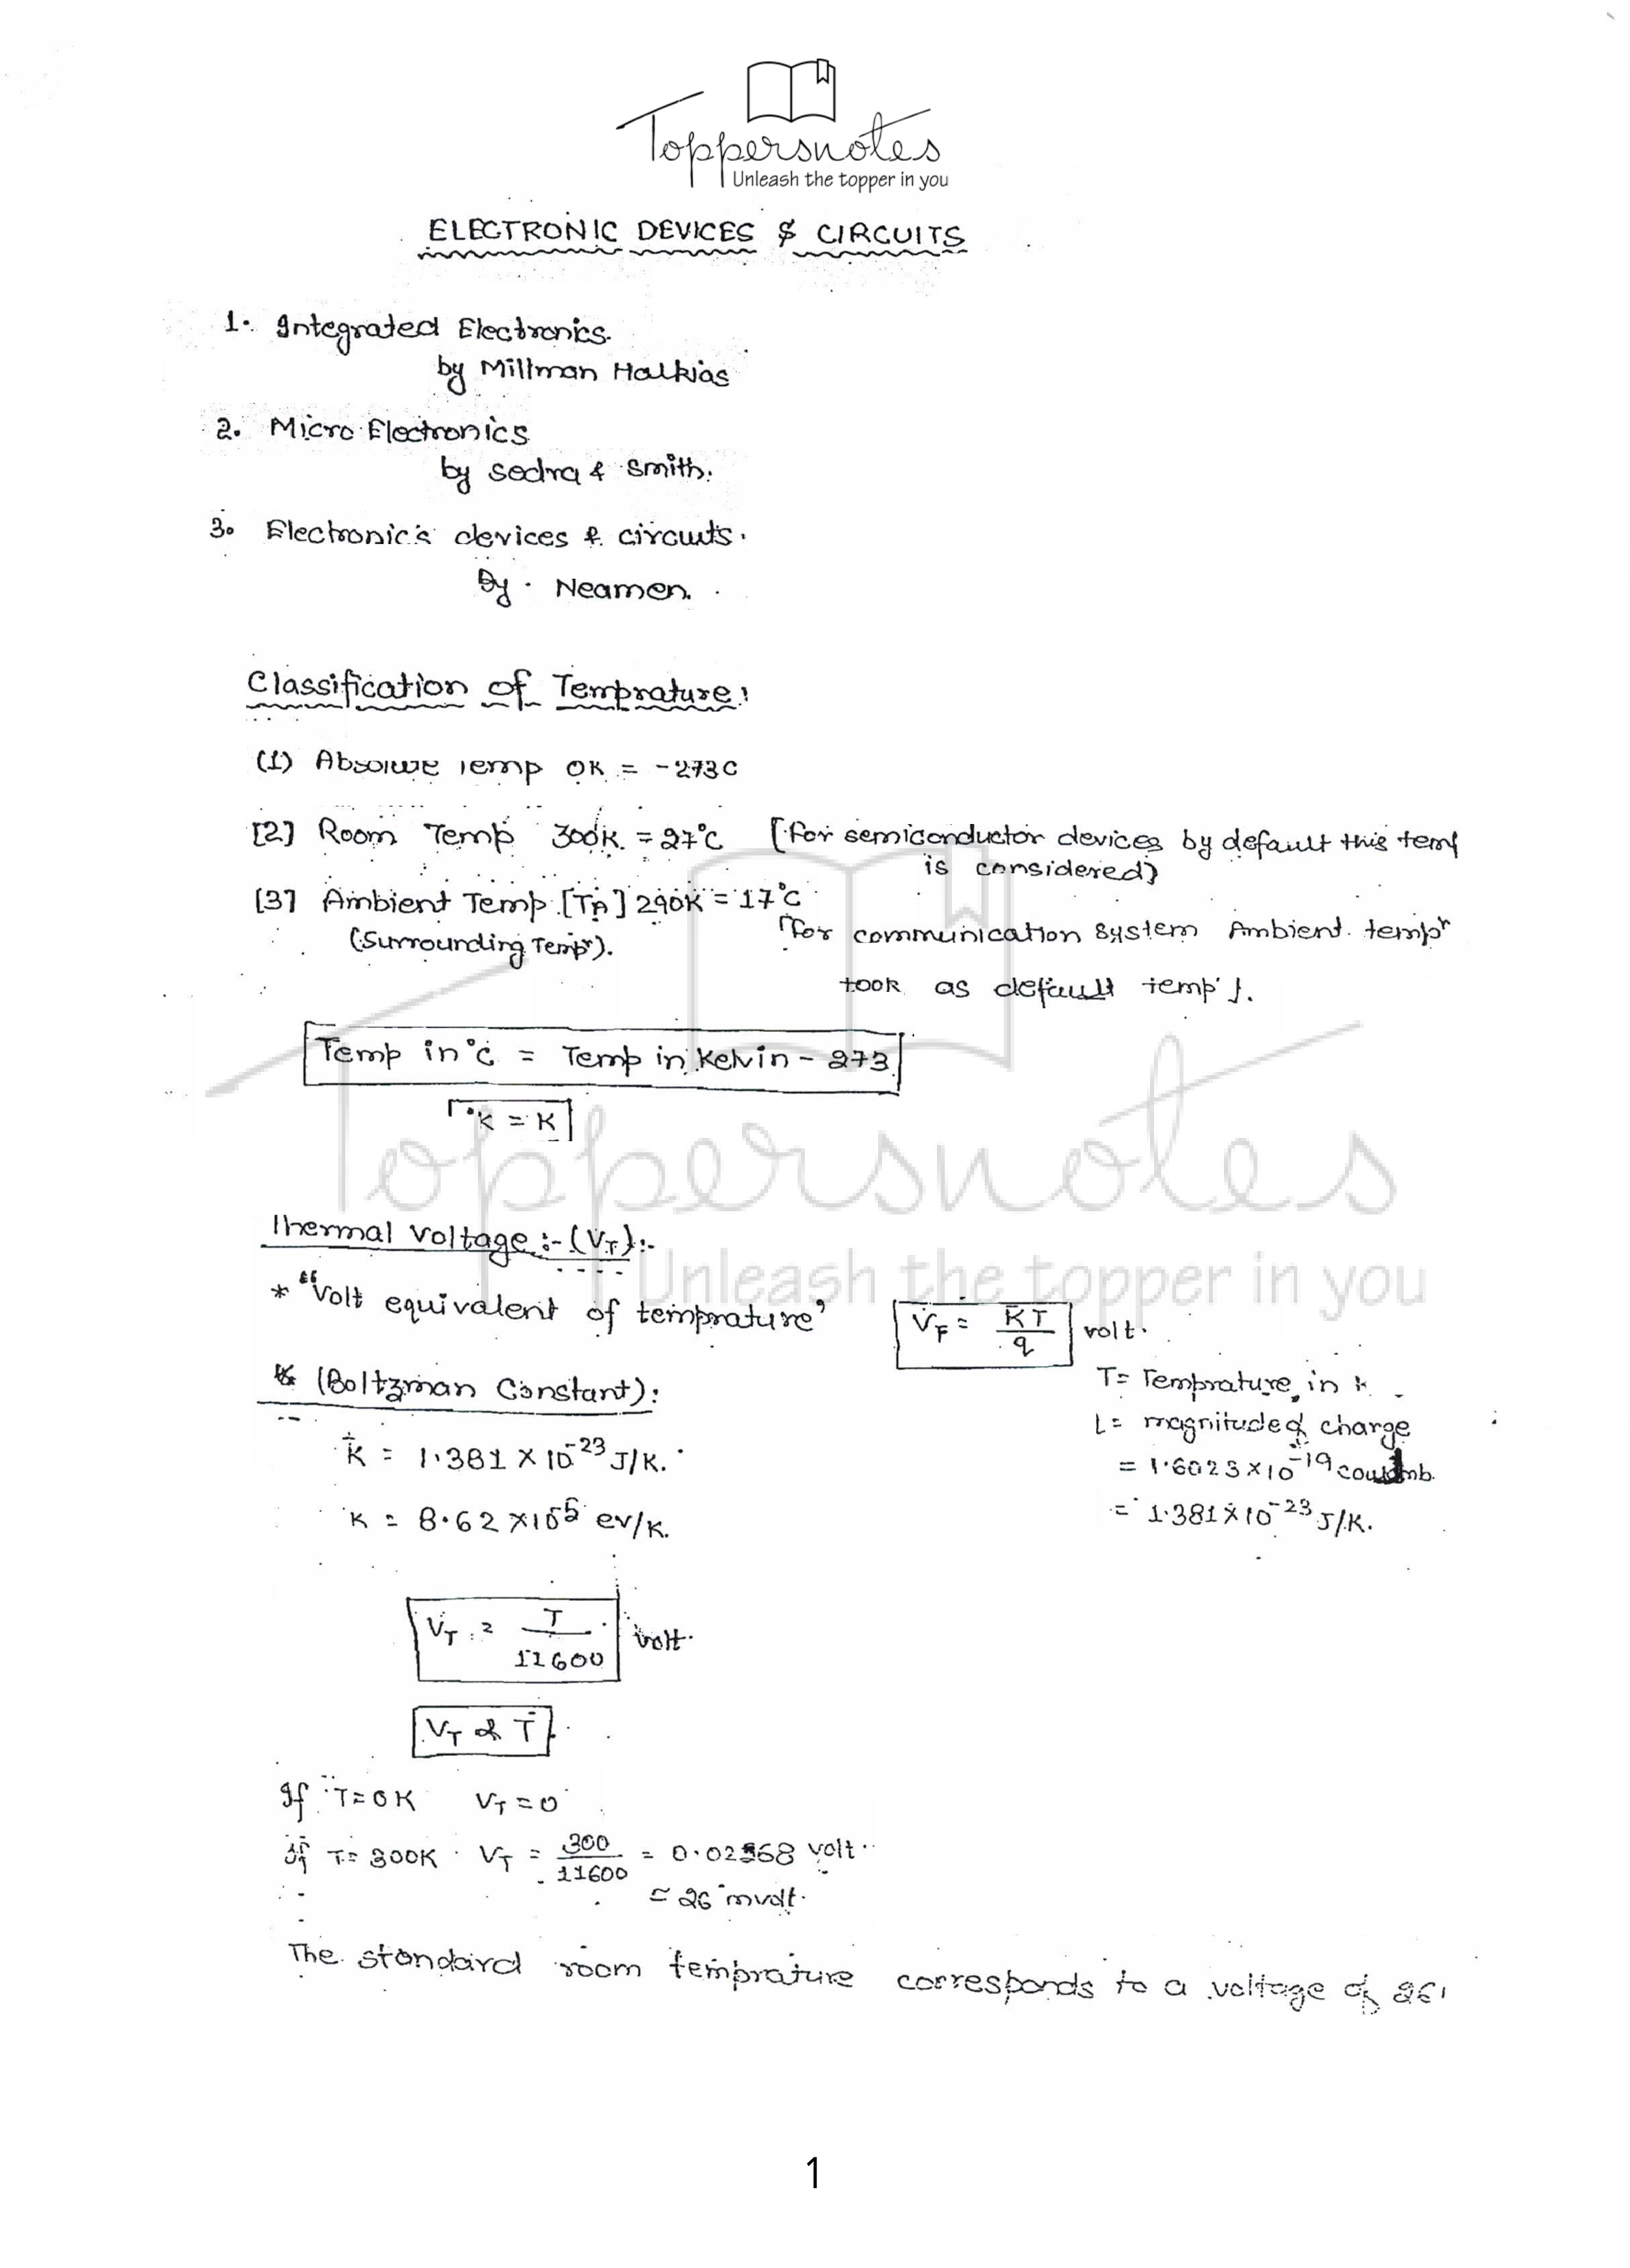 Toppersnotes
Unleash the topper in you
ELECTRONIC DEVICES & CIRCUITS
1. Integrated Electronics.
by Millman Halkias
2. Micro Electronics
by Sedra & Smith.
3. Electronic's devices & circuits.
By Neamen.
Classification of Temprature:
(1) Absolute Temp 0K = -273C
[2] Room Temp 300K = 27°C [for semiconductor devices by default this temp
is considered]
[3] Ambient Temp [TA] 290K = 17°C
(Surrounding Tempr). [for communication system Ambient tempr
took as default temp].
Temp in °C = Temp in Kelvin - 273
°K = K
Thermal Voltage :- (VT):-
* "Volt equivalent of temprature" VF = KT/q volt.
T = Temprature in K
(Boltzman Constant): L = magnitude of charge
K = 1.381 × 10^-23 J/K. = 1.6023 × 10^-19 coulomb.
K = 8.62 × 10^-5 ev/K. = 1.381 × 10^-23 J/K.
VT = T/11600 volt.
VT ∝ T
If T = 0K VT = 0
if T = 300K VT = 300/11600 = 0.02568 volt
≃ 26 mvolt.
The standard room temprature corresponds to a voltage of 26
Toppersnotes
Unleash the topper in you
1